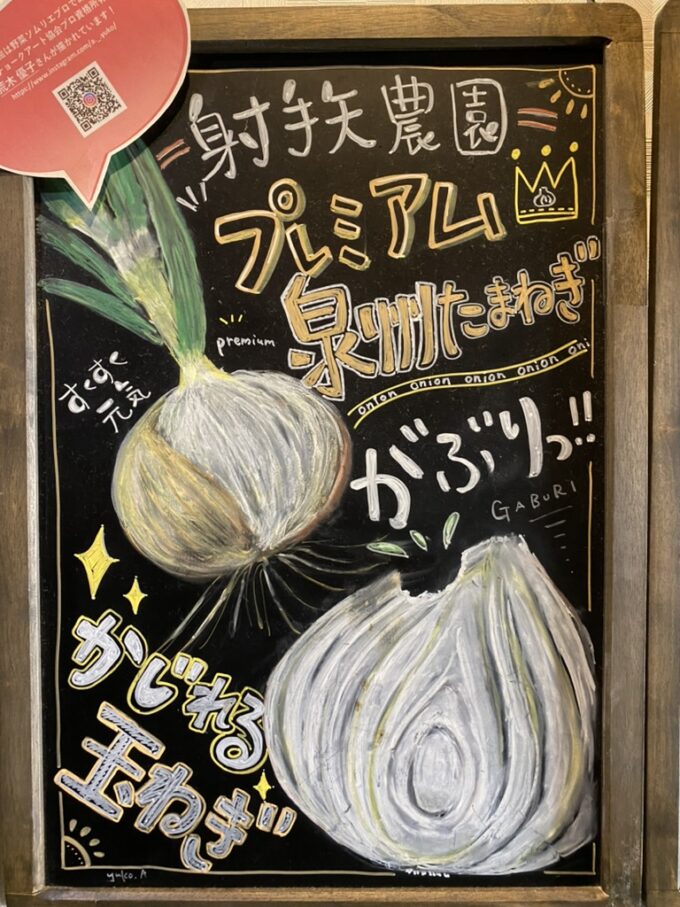 は野菜ソムリエプロで
チョークアート協会プロ資格所有
荒木 優子さんが描かれています!
射手矢農園
プレミアム
泉州たまねぎ
premium
onion onion onion onion oni
すくすく
元気
がぶりっ!!
GABURI
かじれる
玉ねぎ
yuko.A